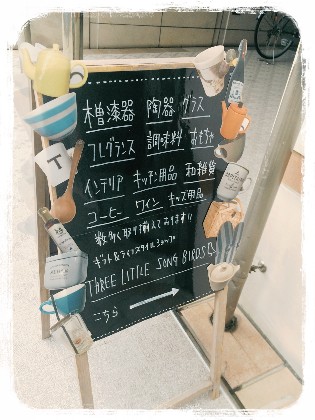 樽漆器 陶器 グラス
フレグランス 調味料 おもちゃ
インテリア キッチン用品 和雑貨
コーヒー ワイン キッズ用品
数多く取り揃えております!!
ギフト&ライフスタイルショップ
THREE LITTLE SONG BIRDS
こちら →
T